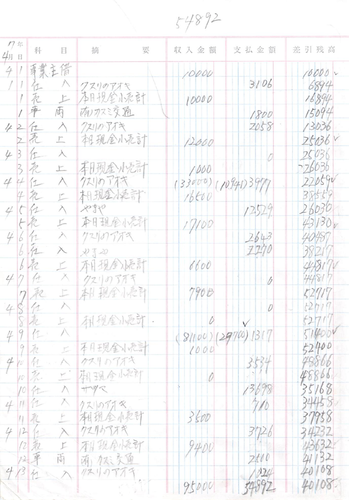 54892
科 目 摘 要 収入金額 支払金額 差引残高
4 1 事業主借 10000 10000
1 仕入 クスリのアオキ 3106 6894
1 売上 本日現金小売計 10000 16894
1 車両 1800 15094
4 2 仕入 クスリのアオキ 2058 13036
2 売上 本日現金小売計 12000 25036
4 3 仕入 0 25036
3 売上 本日現金小売計 1000 26036
4 4 仕入 クスリのアオキ (33000) (10941) 3977 22059
4 売上 本日現金小売計 16500 38559
4 5 仕入 やまや 12529 26030
5 売上 本日現金小売計 17100 43130
4 6 仕入 クスリのアオキ 2643 40487
6 仕入 2270 38217
6 売上 本日現金小売計 6600 44817
4 7 仕入 クスリのアオキ 0 44817
7 売上 本日現金小売計 7900 52717
4 8 仕入 0 52717
8 売上 本日現金小売計 0 52717
4 9 仕入 (81100) (29700) 1317 51400
9 売上 本日現金小売計 1000 52400
4 10 仕入 クスリのアオキ 3534 48866
10 売上 本日現金小売計 0 48866
10 仕入 やまや 13698 35168
4 11 仕入 クスリのアオキ 710 34458
11 売上 本日現金小売計 3600 37958
4 12 仕入 クスリのアオキ 3726 34232
12 売上 本日現金小売計 9400 43632
12 車両 2500 41132
4 13 仕入 クスリのアオキ 1024 40108
95000 54892 40108